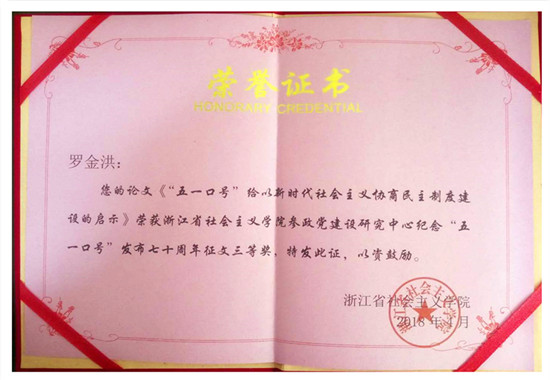 荣誉证书
HONORARY CREDENTIAL
罗金洪：
您的论文《“五一口号”给以新时代社会主义协商民主制度建
设的启示》荣获浙江省社会主义学院参政党建设研究中心纪念“五
一口号”发布七十周年征文三等奖，特发此证，以资鼓励。
浙江省社会主义学院
2018 年 4 月
浙江省社会主义学院